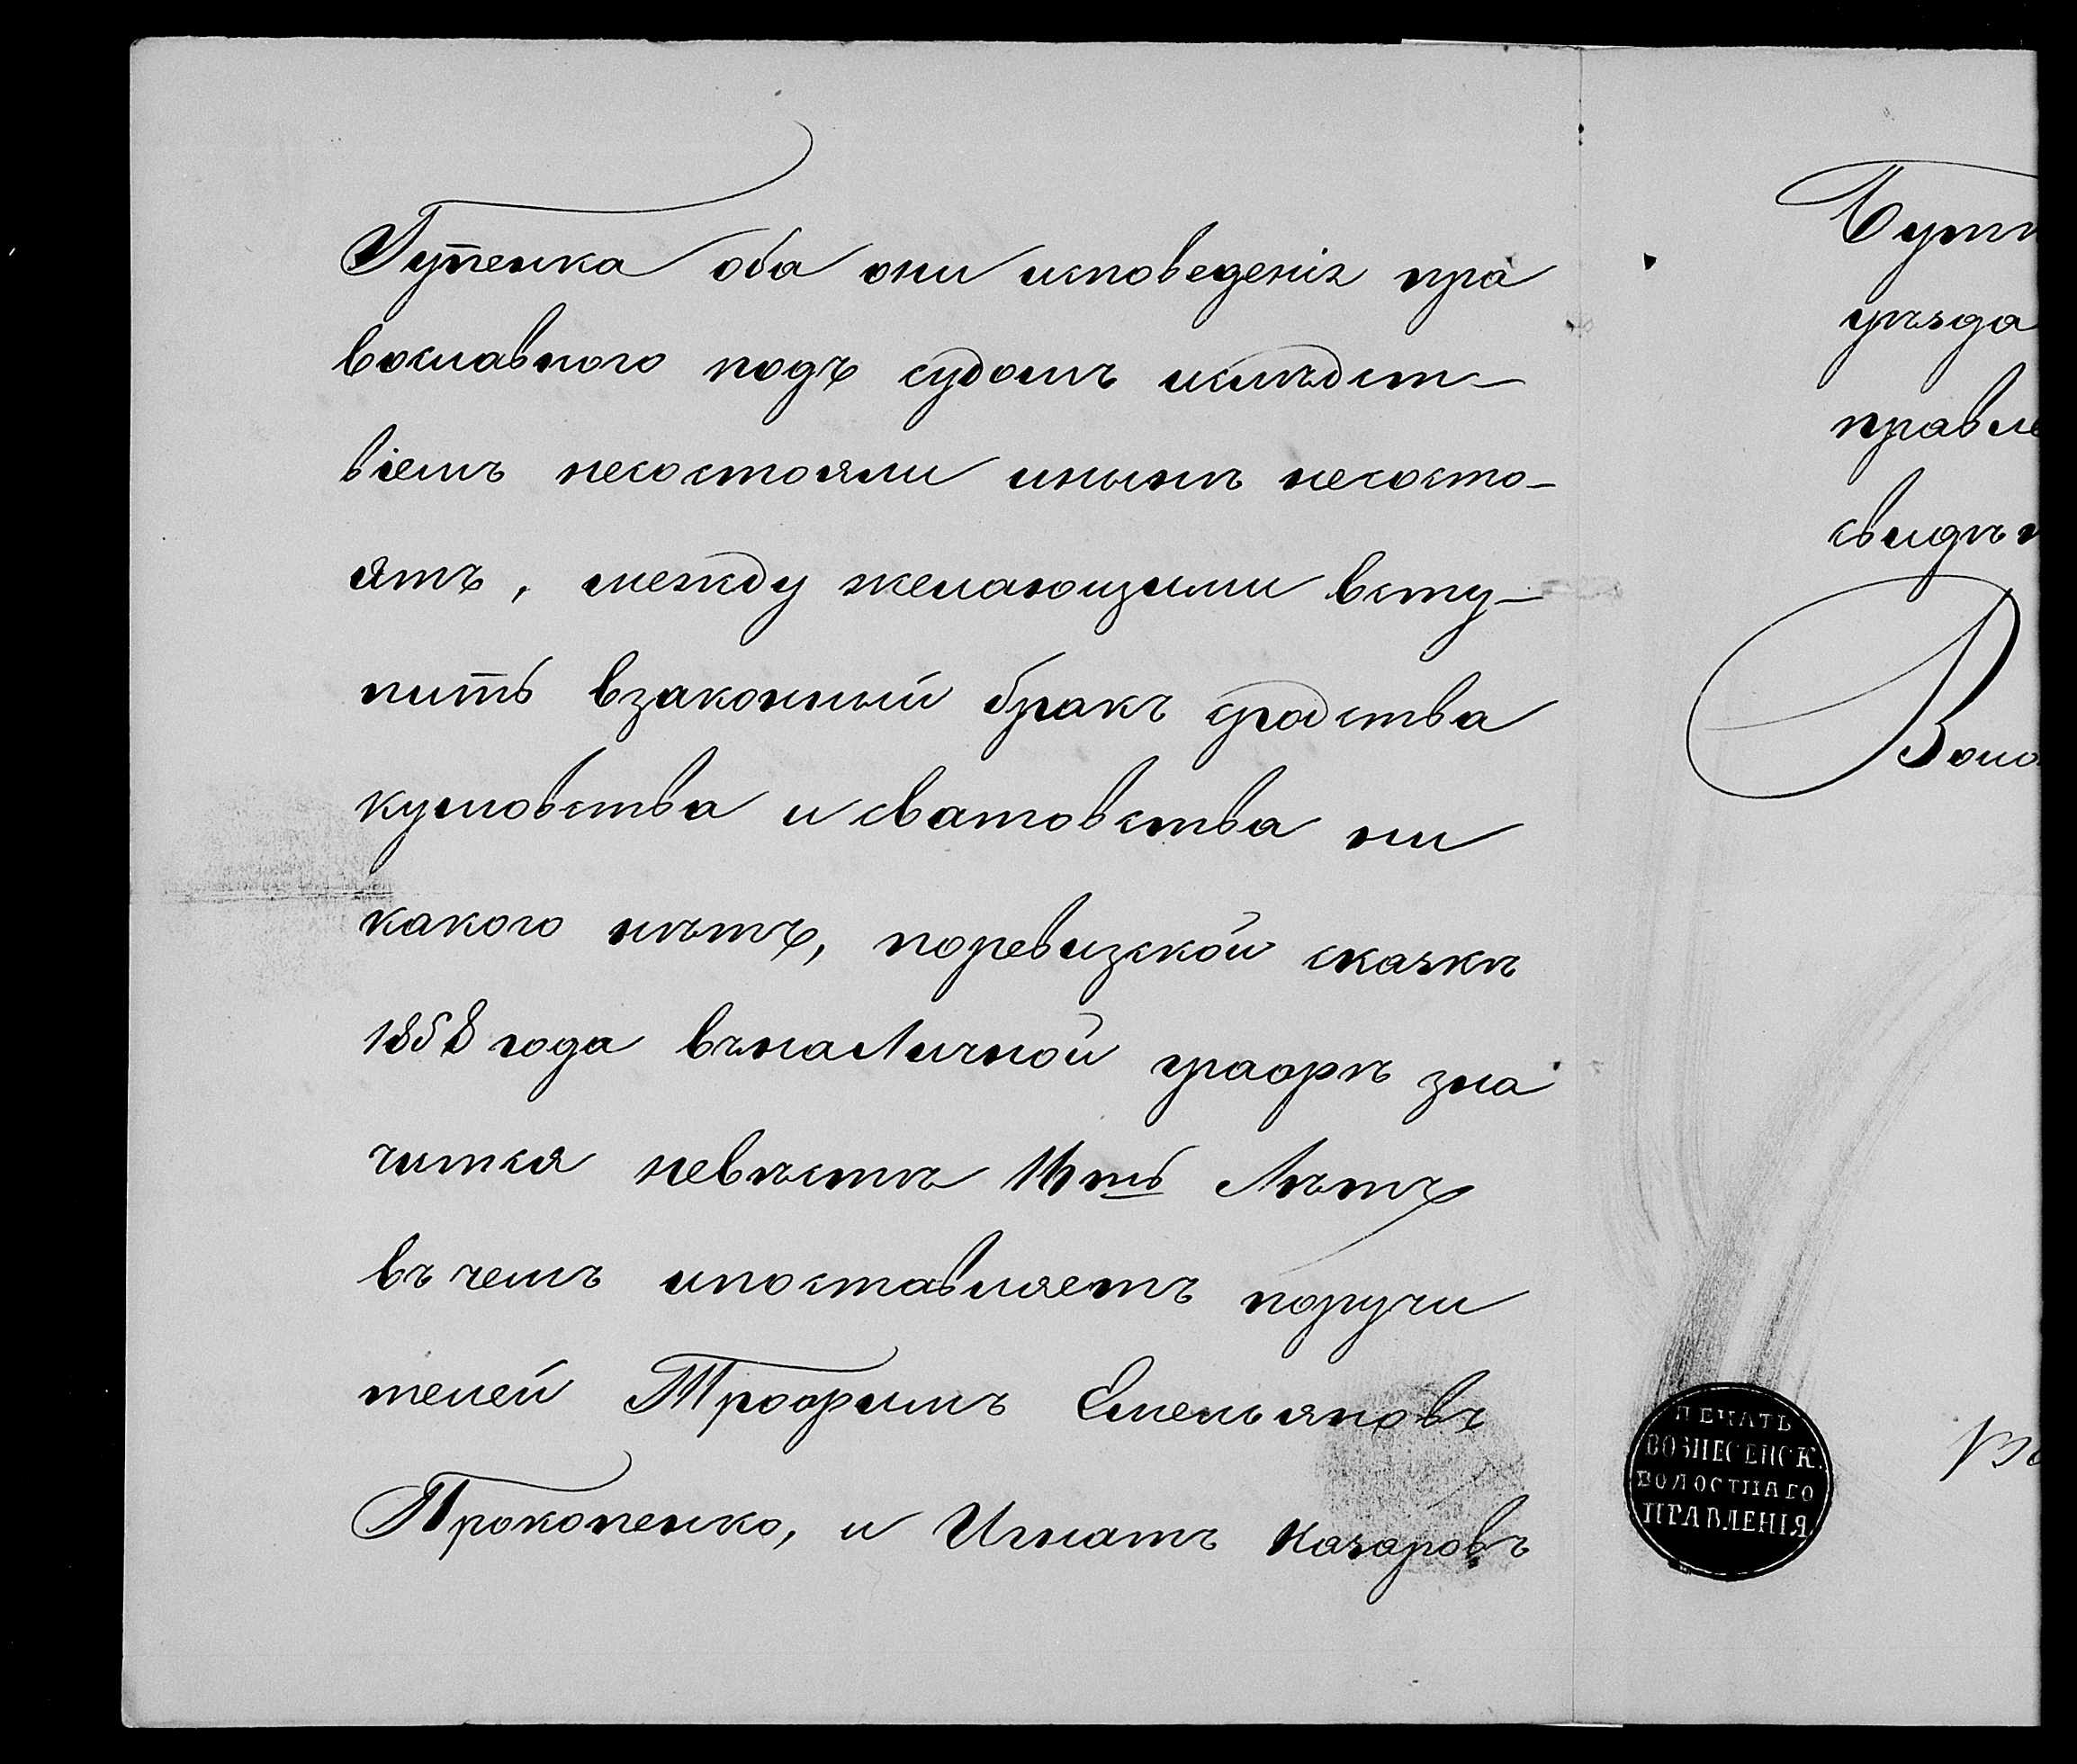 Гупенка оба они исповеденія пра
вославного подъ судомъ ислѣдст-
віемъ несостояли инынѣ несосто-
ятъ, между желающими всту-
пить взаконный бракъ сродства
кумовства и сватовства ни
какого нѣтъ, поревизской сказкѣ
1858 года въналичной графѣ зна
чится невѣстѣ 16ть лѣтъ
въ чемъ ипоставляетъ поручи
телей Трофимъ Емельяновъ
Прокопенко, и Игнатъ Назаровъ
уѣзда
правле
свидѣт
Воло
ПЕЧАТЬ
ВОЗНЕСЕНСК.
ВОЛОСТНАГО
ПРАВЛЕНІЯ